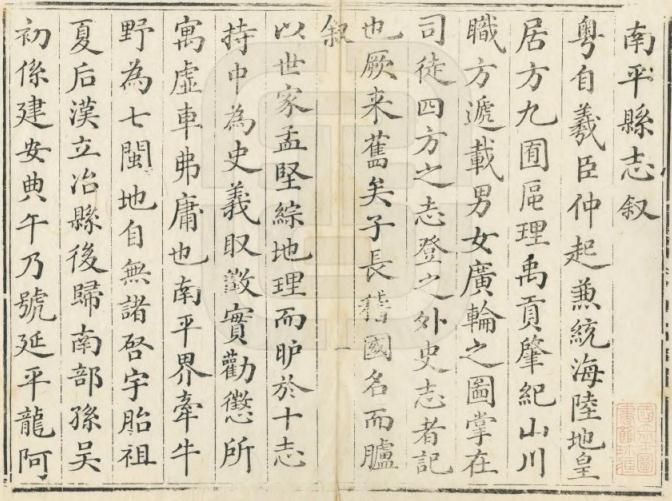 南平縣志叙
粵自羲臣仲起兼統海陸地皇
居方九囿區理禹貢肇紀山川
職方遞載男女廣輪之圖掌在
司徒四方之志登之外史志者記
也厥来舊矣子長稽國名而臚
叙
以世家孟堅綜地理而昈於十志
持中為史義取徵實勸懲所
寓虛車弗庸也南平界牽牛
野為七閩地自無諸啓宇胎祖
夏后漢立冶縣後歸南部孫吳
初係建安典午乃號延平龍阿